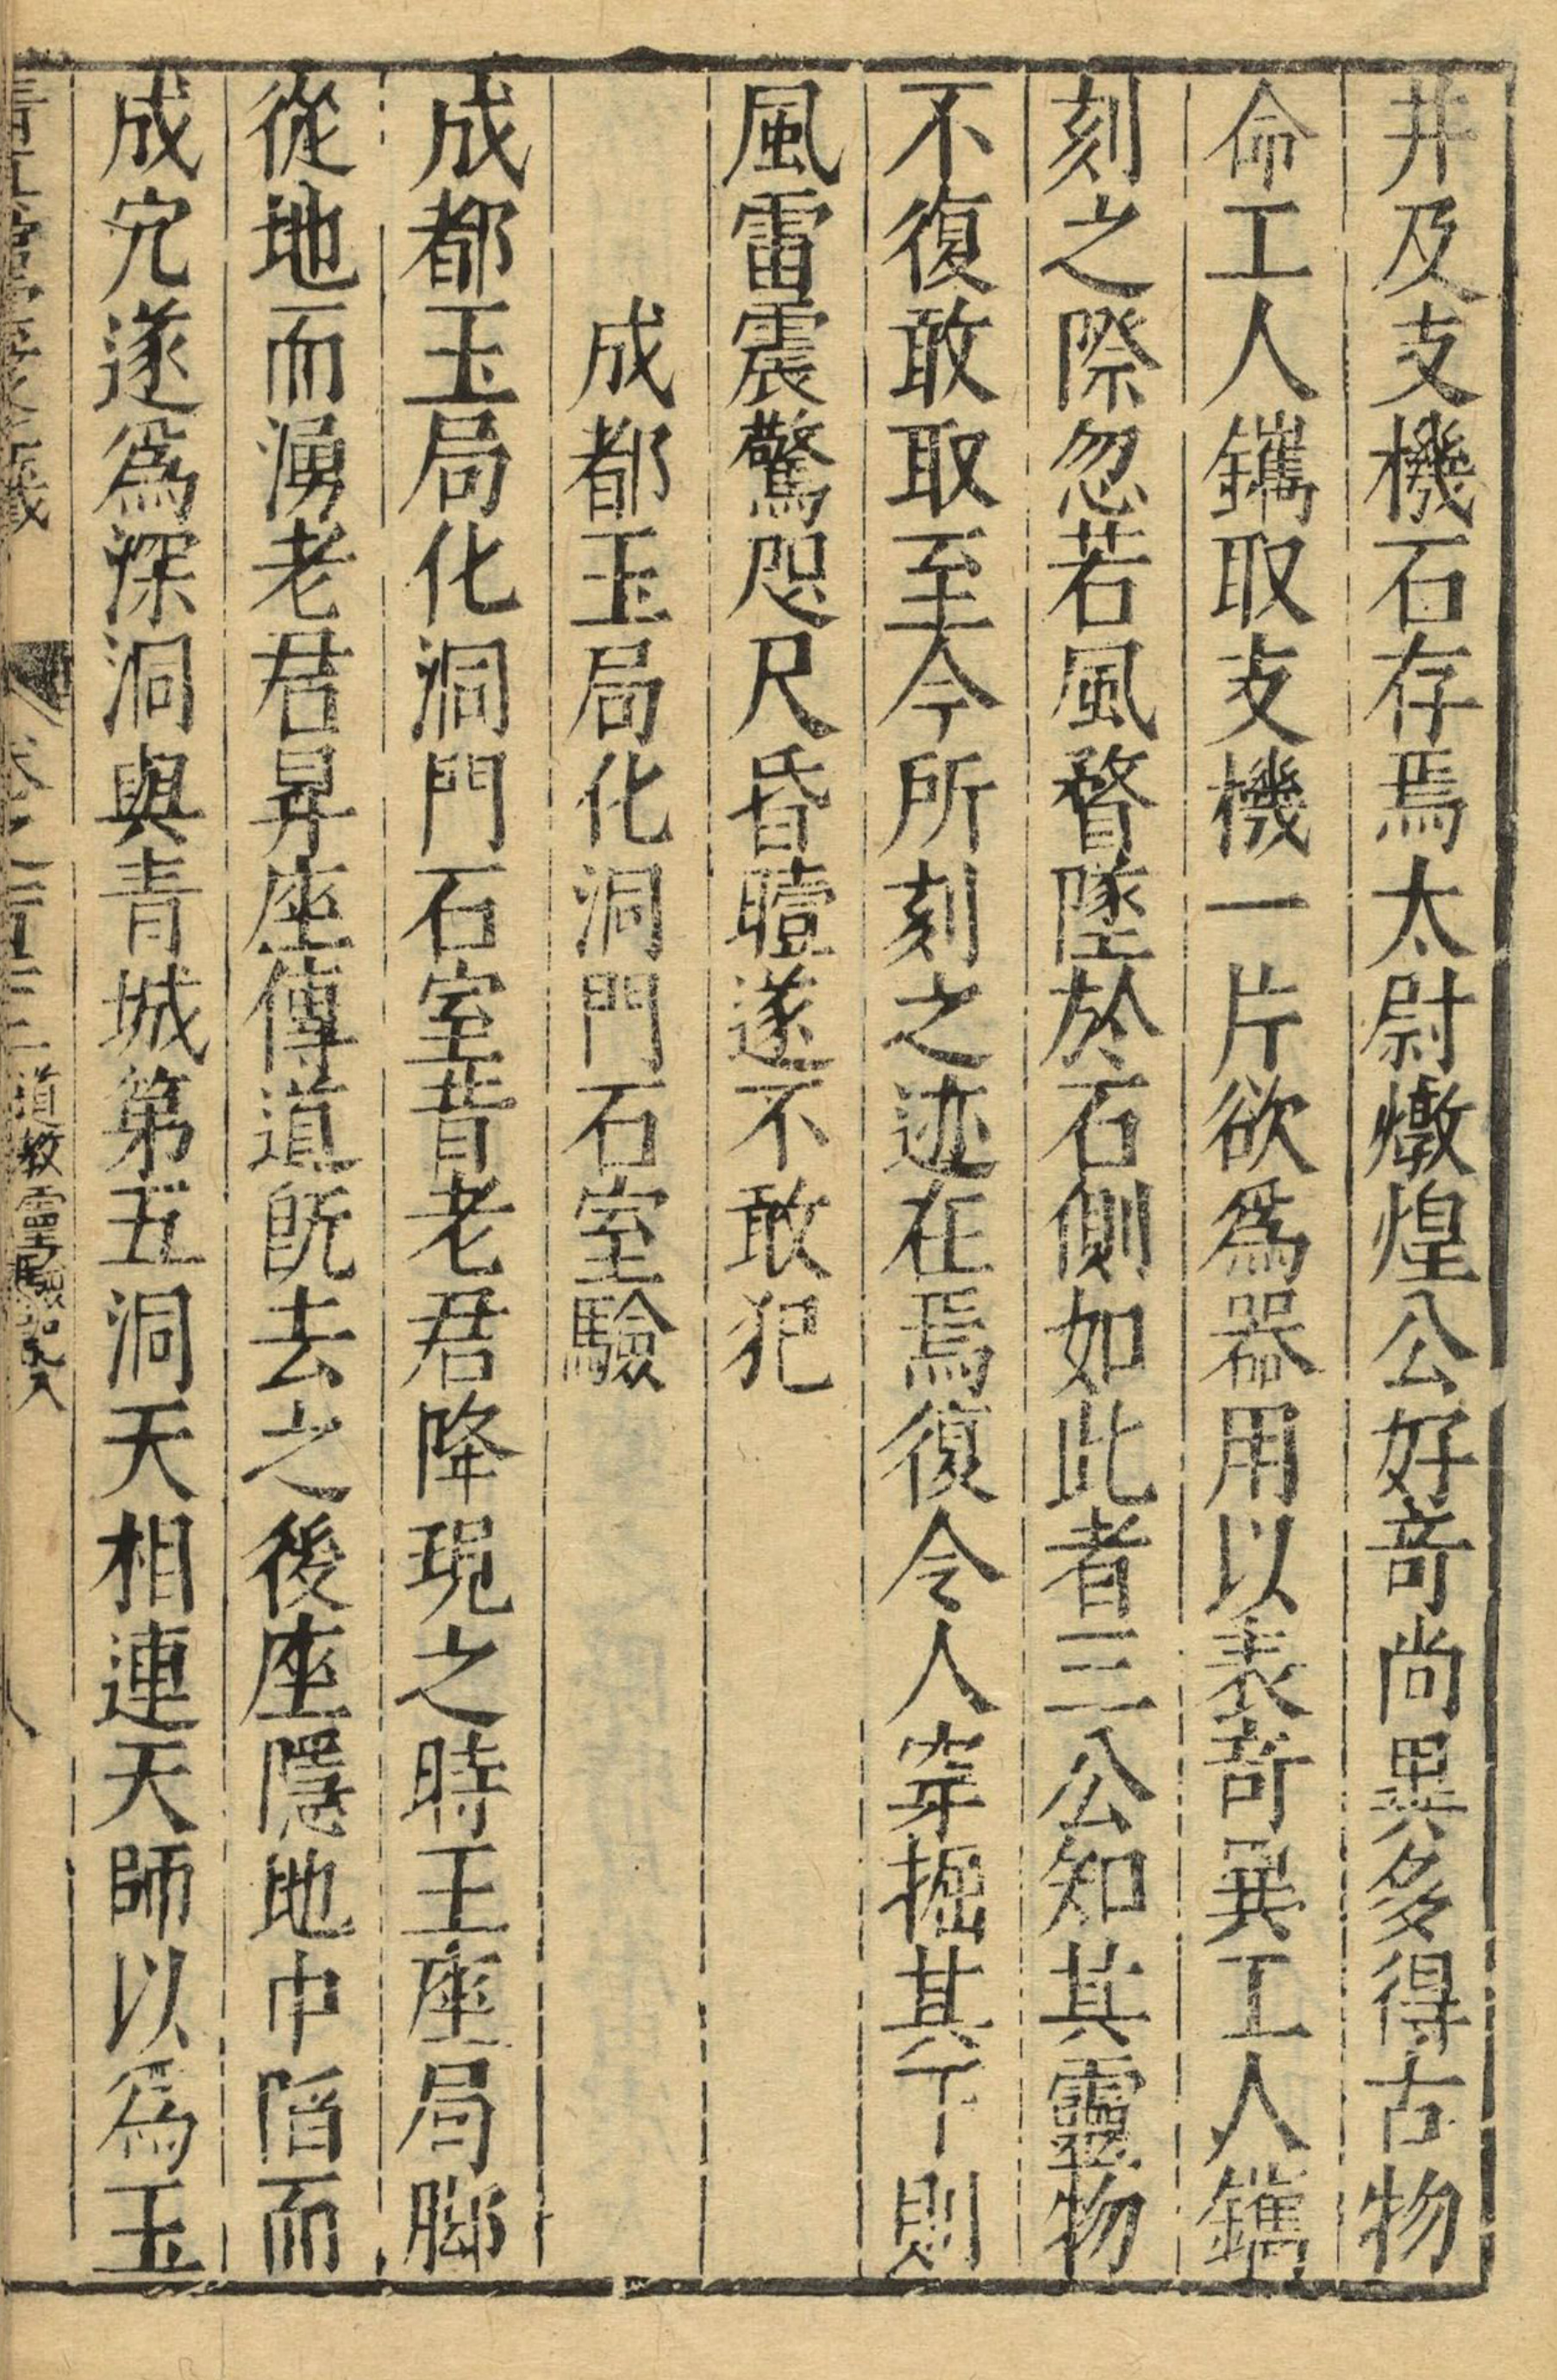 井及支機石存焉太尉燉煌公好竒尚異多得古物
命工人鐫取支機一片欲爲器用以表竒異工人鐫
刻之際忽若風瞀墜於石側如此者三公知其靈物
不復敢取至今所刻之迹在焉復令人穿掘其下則
風雷震驚咫尺昏曀遂不敢犯
成都玉局化洞門石室驗
成都玉局化洞門石室昔老君降現之時玉座局脚
從地而湧老君昇座傳道既去之後座隱地中陷而
成穴遂爲深洞與青城第五洞天相連天師以爲玉
道教靈驗記入